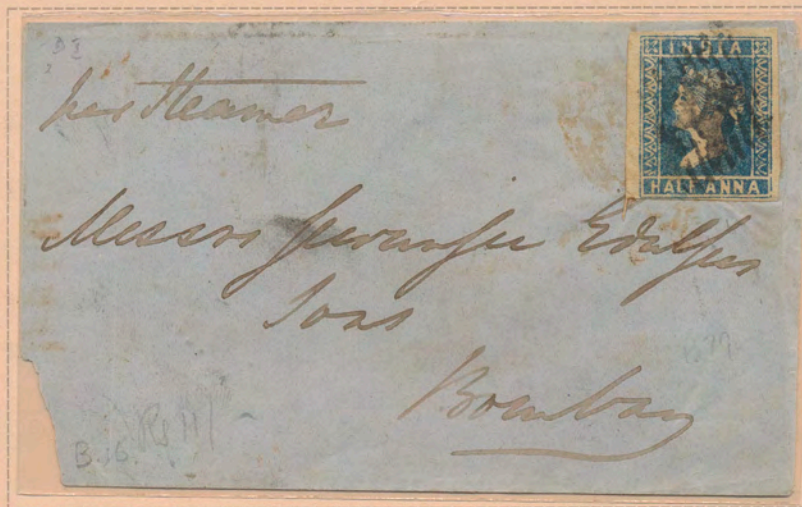 D I
2
INDIA
HALF ANNA
per Steamer
Messrs Jevanjee Edaljee
Sons
Bombay
B.16
Rs 11/